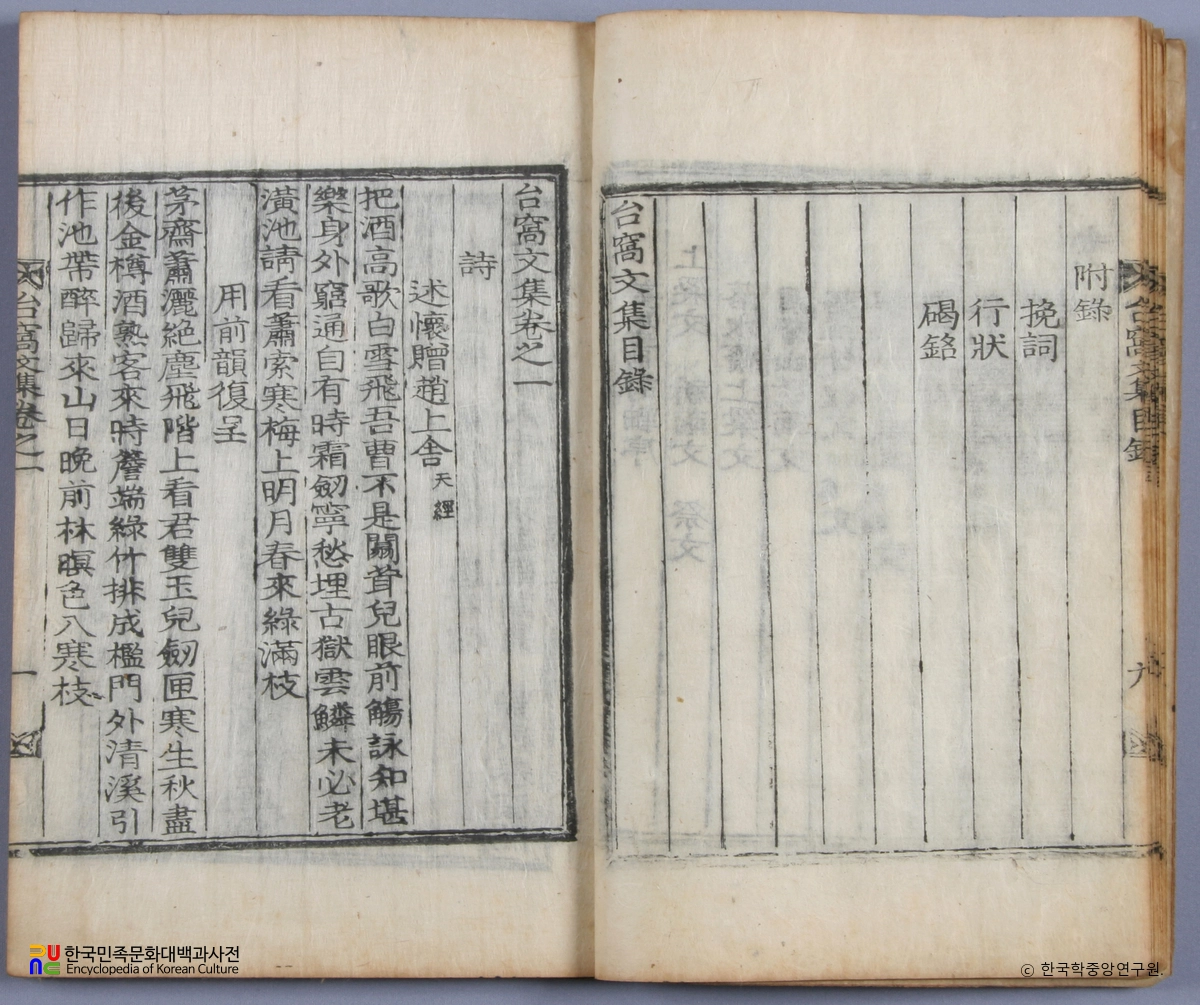 附錄
挽詞
行狀
碣銘
台窩文集目錄
台窩文集目錄
九
台窩文集卷之一
詩
述懷贈趙上舍 天經
把酒高歌白雪飛吾曹不是闒茸兒眼前觴詠知堪
樂身外窮通自有時霜劒寧愁埋古獄雲鱗未必老
潢池請看蕭索寒梅上明月春來綠滿枝
用前韻復呈
茅齋蕭灑絶塵飛階上看君雙玉兒劒匣寒生秋盡
後金樽酒熟客來時簷端綠竹排成檻門外清溪引
作池帶醉歸來山日晩前林暝色入寒枝
台窩文集卷之一
一
한국민족문화대백과사전
Encyclopedia of Korean Culture
ⓒ 한국학중앙연구원.